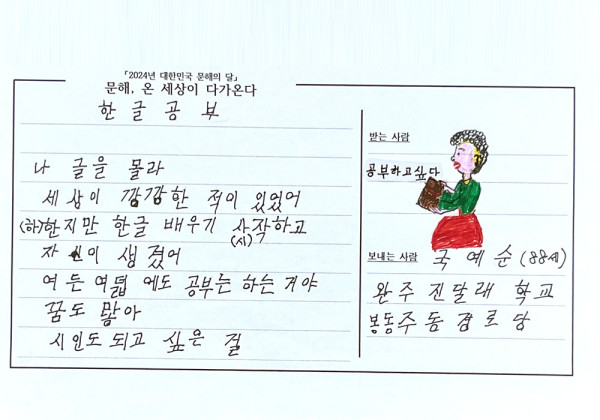 「2024년 대한민국 문해의 달」
문해, 온 세상이 다가온다
한글공부
나 글을 몰라
세상이 깜깜한 적이 있었어
(하)한지만 한글 배우기 사작하고
(시)
자신이 생겼어
여든 여덟에도 공부는 하는거야
꿈도 많아
시인도 되고 싶은 걸
받는 사람
공부하고싶다
보내는 사람 국예순(88세)
완주 진달래 학교
봉동주동경로당